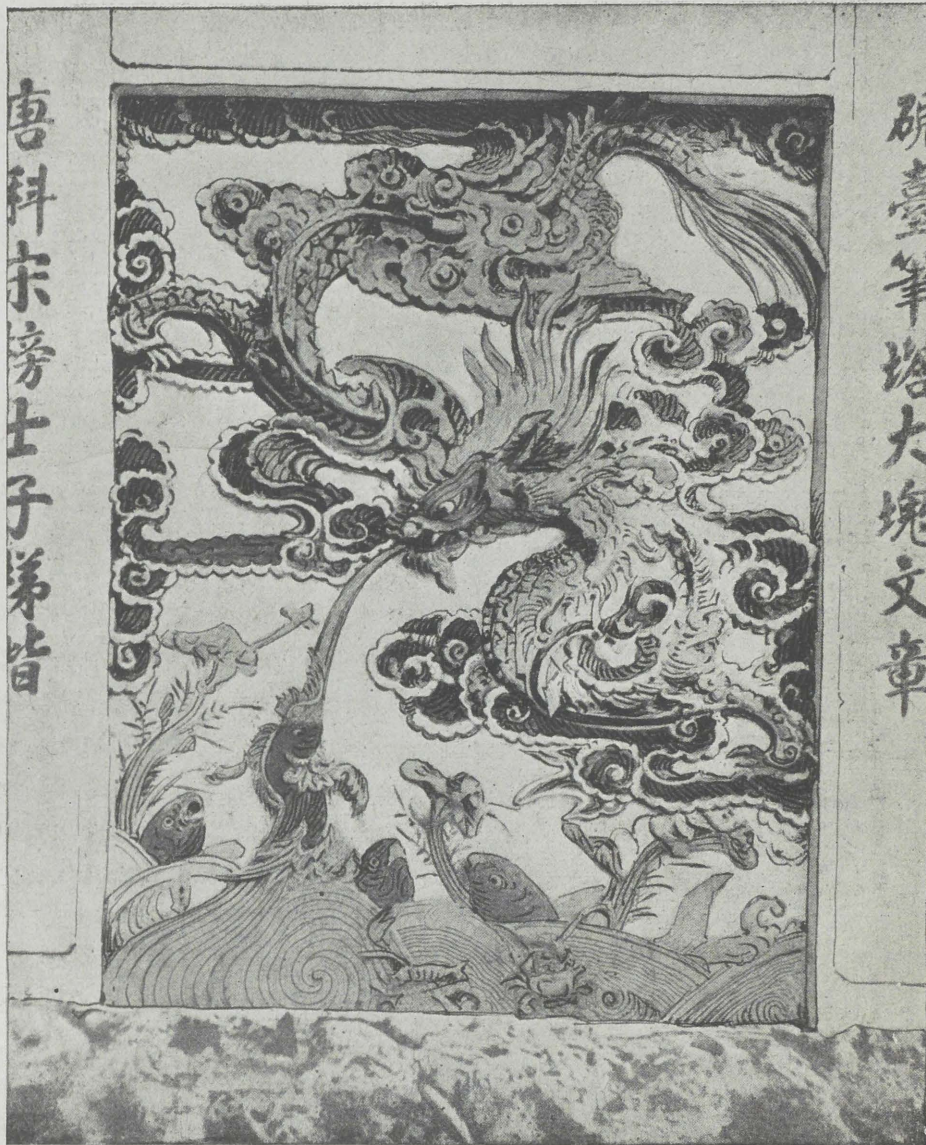 硯臺筆塔大塊文章
唐科宋榜士子弟皆